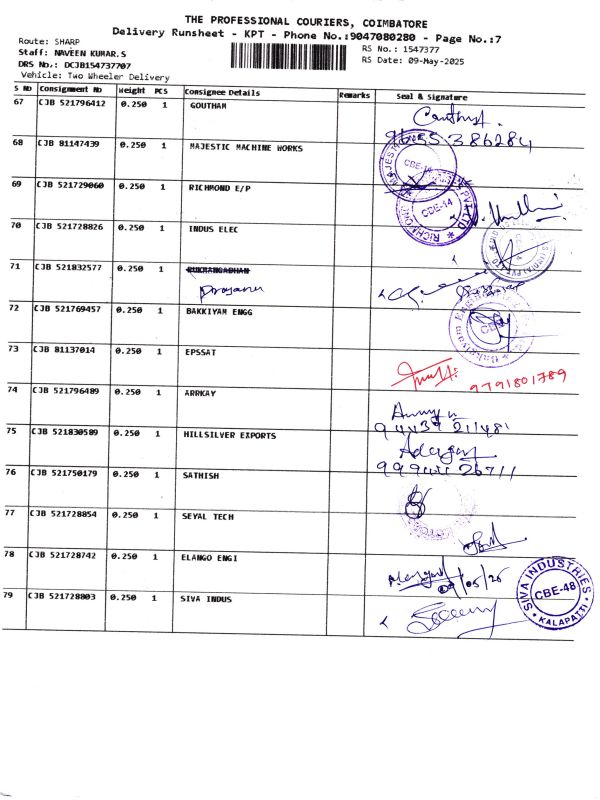 THE PROFESSIONAL COURIERS, COIMBATORE
Delivery Runsheet - KPT - Phone No.:9047080280 - Page No.:7
Route: SHARP
Staff: NAVEEN KUMAR.S
DRS No.: DCJB154737707
Vehicle: Two Wheeler Delivery
RS No.: 1547377
RS Date: 09-May-2025
S No Consignment No Weight PCS Consignee Details Remarks Seal & Signature
67 CJB 521796412 0.250 1 GOUTHAM
68 CJB 81147439 0.250 1 MAJESTIC MACHINE WORKS
CBE-14
69 CJB 521729060 0.250 1 RICHMOND E/P
CBE-14
70 CJB 521728826 0.250 1 INDUS ELEC
71 CJB 521832577 0.250 1
72 CJB 521769457 0.250 1 BAKKIYAM ENGG
73 CJB 81137014 0.250 1 EPSSAT
9791801789
74 CJB 521796489 0.250 1 ARRKAY
94439 211481
75 CJB 521830589 0.250 1 HILLSILVER EXPORTS
76 CJB 521750179 0.250 1 SATHISH
77 CJB 521728854 0.250 1 SEYAL TECH
78 CJB 521728742 0.250 1 ELANGO ENGI
79 CJB 521728803 0.250 1 SIVA INDUS
SIVA INDUSTRIES
CBE-48
KALAPATTI